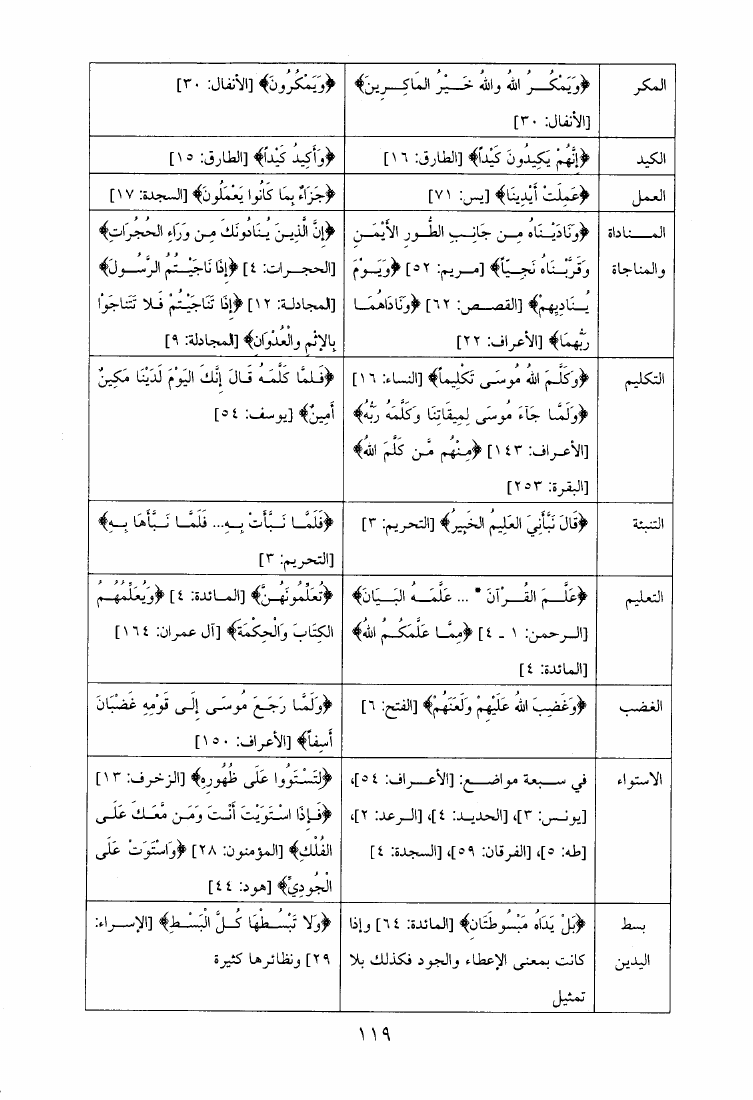 المكر
﴿وَيَمْكُــرُ اللهُ واللهُ خَــيْرُ المَاكِــرِينَ﴾
[الأنفال: ٣٠]
﴿وَيَمْكُرُونَ﴾ [الأنفال: ٣٠]
الكيد
﴿إِنَّهُمْ يَكِيدُونَ كَيْداً﴾ [الطارق: ١٦]
﴿وَأَكِيدُ كَيْداً﴾ [الطارق: ١٥]
العمل
﴿عَمِلَتْ أَيْدِينَا﴾ [يس: ٧١]
﴿جَزَاءً بِمَا كَانُوا يَعْمَلُونَ﴾ [السجدة: ١٧]
المـــناداة
والمناجاة
﴿وَنَادَيْـنَاهُ مِـن جَانِـبِ الطُّـورِ الأَيْمَـنِ
وَقَرَّبْـنَاهُ نَجِـيّاً﴾ [مـريم: ٥٢] ﴿وَيَـوْمَ
يُـنَادِيهِمْ﴾ [القصـص: ٦٢] ﴿وَنَادَاهُمَـا
رَبُّهُمَا﴾ [الأعراف: ٢٢]
﴿إِنَّ الَّذِيـنَ يُـنَادُونَكَ مِـن وَرَاءِ الحُجُرَاتِ﴾
[الحجـرات: ٤] ﴿إِذَا نَاجَيْـتُمُ الرَّسُـولَ﴾
[المجادلـة: ١٢] ﴿إِذَا تَنَاجَيْـتُمْ فَـلا تَتَناجَوْا
بِالإِثْمِ والْعُدْوَانِ﴾ [المجادلة: ٩]
التكليم
﴿وَكَلَّـمَ اللهُ مُوسَـى تَكْلِيماً﴾ [النساء: ١٦]
﴿وَلَمَّا جَآءَ مُوسَى لِمِيقَاتِنَا وَكَلَّمَهُ رَبُّهُ﴾
[الأعراف: ١٤٣] ﴿مِـنْهُم مَّـن كَلَّمَ اللهُ﴾
[البقرة: ٢٥٣]
﴿فَـلمَّا كَلَّمَـهُ قَـالَ إِنَّكَ اليَوْمَ لَدَيْنَا مَكِينٌ
أَمِينٌ﴾ [يوسف: ٥٤]
التنبئة
﴿قَالَ نَبَّأَنِيَ العَلِيمُ الخَبِيرُ﴾ [التحريم: ٣]
﴿فَلَمَّـا نَـبَّأَتْ بِـهِ... فَلَمَّـا نَـبَّأَهَا بِـهِ﴾
[التحريم: ٣]
التعليم
﴿عَلَّـمَ القُـرْآنَ * ... عَلَّمَـهُ البَـيَانَ﴾
[الـرحمن: ١ ـ ٤] ﴿مِمَّـا عَلَّمَكُـمُ اللهُ﴾
[المائدة: ٤]
﴿تُعَلِّمُونَهُـنَّ﴾ [المـائدة: ٤] ﴿وَيُعَلِّمُهُـمُ
الكِتَابَ وَالْحِكْمَةَ﴾ [آل عمران: ١٦٤]
الغضب
﴿وَغَضِبَ اللهُ عَلَيْهِمْ وَلَعَنَهُمْ﴾ [الفتح: ٦]
﴿وَلَمَّا رَجَعَ مُوسَـى إِلَـى قَوْمِهِ غَضْبَانَ
أَسِفاً﴾ [الأعراف: ١٥٠]
الاستواء
في سـبعة مواضـع: [الأعـراف: ٥٤]،
[يونـس: ٣]، [الحديـد: ٤]، [الـرعد: ٢]،
[طه: ٥]، [الفرقان: ٥٩]، [السجدة: ٤]
﴿لِتَسْتَوُوا عَلَى ظُهُورِهِ﴾ [الزخرف: ١٣]
﴿فَـإِذَا اسْـتَوَيْتَ أَنْـتَ وَمَـن مَّعَـكَ عَلَـى
الفُلْكِ﴾ [المؤمنون: ٢٨] ﴿وَاسْتَوَتْ عَلَى
الْجُودِيِّ﴾ [هود: ٤٤]
بسط
اليدين
﴿بَلْ يَدَاهُ مَبْسُوطَتَانِ﴾ [المائدة: ٦٤] وإذا
كانت بمعنى الإعطاء والجود فكذلك بلا
تمثيل
﴿وَلا تَبْسُـطْهَا كُـلَّ الْبَسْـطِ﴾ [الإسـراء:
٢٩] ونظائرها كثيرة
١١٩